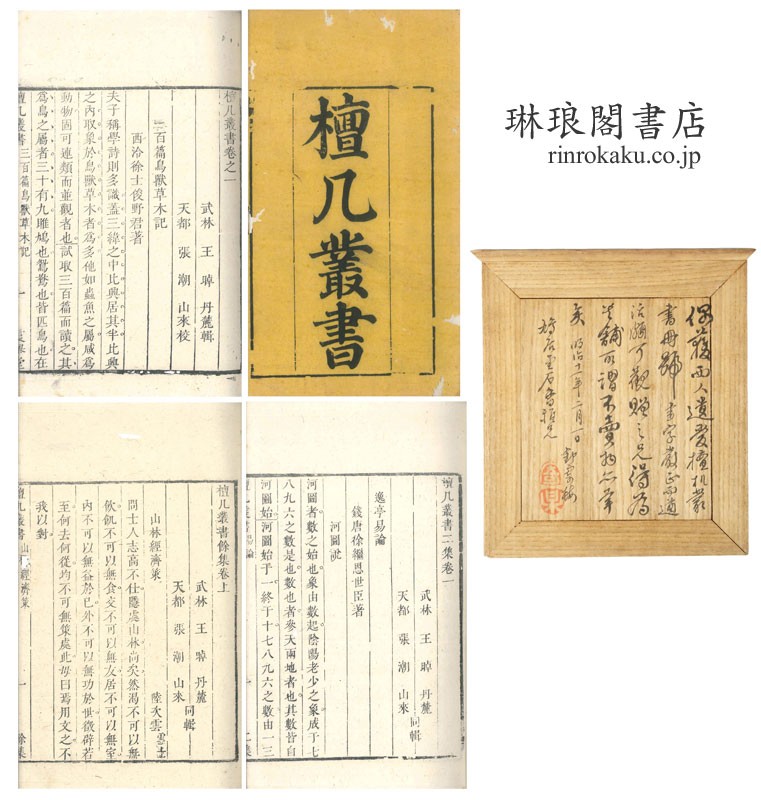 檀几叢書
琳琅閣書店
rinrokaku.co.jp
檀几叢書卷之一
武林 王晫 丹麓輯
天都 張潮 山來校
三百篇鳥獸草木記
西泠徐士俊野君著
夫子稱學詩則多識葢三緯之中比興居其半比興
之內取象於鳥獸草木者為多他如蟲魚之屬咸為
動物固可連類而並觀者也試取三百篇而讀之其
為鳥之屬者三十有九雎鳩也鴛鴦也皆匹鳥也在
檀几叢書 三百篇鳥獸草木記 一
偶獲西人遺愛檀机叢
書冊 書字嚴正而遒
活頗可觀贈之兄得為
舗所謂不賣物亦幸
矣 明治十一年二月一日
檀几叢書二集卷一
武林 王晫 丹麓
天都 張潮 山來 同輯
逸亭易論
錢唐徐繼恩世臣著
河圖說
河圖者數之始也象由數起陰陽老少之象成于七
八九六之數是也數也者參天兩地者也其數皆自
河圖始河圖始于一終于十七八九六之數由一三
檀几叢書 易論 一 二集
檀几叢書餘集卷上
武林 王晫 丹麓
天都 張潮 山來 同輯
山林經濟策 陸次雲雲士
問士人志高不仕隱處山林尚矣然渴不可以無
飲飢不可以無食交不可以無友居不可以無室
內不可以無益於己外不可以無功於世徵辟若
至何去何從均不可無策處此毋曰焉用文之不
我以對
檀几叢書 山林經濟策 一 餘集